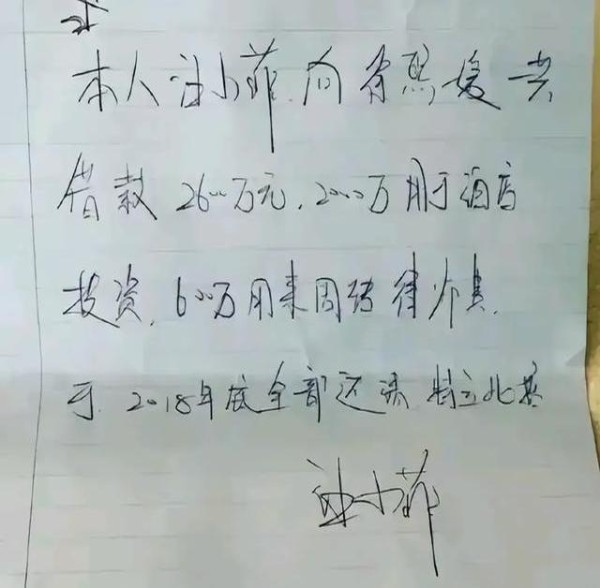 本人汪小菲.向徐熙媛共
借款2600万元.2000万用于酒店
投资.600万用来周转律师费.
于2018年底全部还清.特立此据
汪小菲